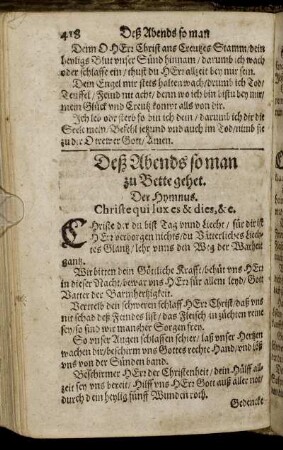 418 Deß Abends so man
Denn O HErr Christ ans Creutzes Stamm/ dein
heyligs Blut vnser Sünd hinnam/ darumb ich wach
oder schlaffe ein/ thust du HErr allzeit bey mir sein.
Dein Engel mir stets halten wach/ drumb ich Tod/
Teuffel/ Feind nit acht/ denn wo ich bin bistu bey mir/
mein Glück vnd Creutz kompt alls von dir.
Ich leb oder sterb so bin ich dein/ darumb ich dir die
Seele mein/ Befehl jetzund vnd auch im Tod/ nimb sie
zu dir O trewer Gott/ Amen.
Deß Abends so man
zu Bette gehet.
Der Hymnus.
Christe qui lux es & dies, &c.
CHriste der du bist Tag vnnd Liecht/ für dir ist
HErr verborgen nichts/ du Vätterliches Liech-
tes Glantz/ lehr vnns den Weg der Warheit
gantz.
Wir bitten dein Göttliche Krafft/ behüt vns HErr
in dieser Nacht/ bewar vns HErr für allem leyd/ Gott
Vatter der Barmhertzigkeit.
Vertreib den schweren schlaff HErr Christ/ daß vns
nit schad deß Feindes list/ das Fleisch in züchten reine
sey/ so sind wir mancher Sorgen frey.
So vnser Augen schlaffen schier/ laß vnser Hertzen
wachen dir/ beschirm vns Gottes rechte Hand/ vnd löß
vns von der Sünden band.
Beschirmer HErr der Christenheit/ dein Hülff all-
zeit sey vns bereit/ Hilff vns HErr Gott auß aller not/
durch dein heylig fünff Wunden roth.
Gedencke